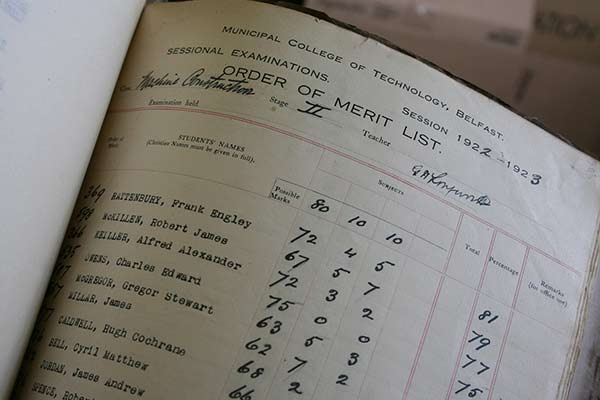 MUNICIPAL COLLEGE OF TECHNOLOGY, BELFAST.
SESSIONAL EXAMINATIONS. SESSION 1922-1923
ORDER OF MERIT LIST.
Machine Construction Stage II Teacher
Examination held
Order of Merit
STUDENTS' NAMES
(Christian Names must be given in full).
SUBJECTS
Total
Percentage
Remarks
(for office use)
Possible Marks 80 10 10
369 RAITENBURY, Frank Engley 72 4 5 81
McKILLEN, Robert James 67 5 7 79
KEILLER, Alfred Alexander 72 3 2 77
OWENS, Charles Edward 75 0 0 75
McGREGOR, Gregor Stewart 63 5 3
MILLAR, James 62 7 2
CALDWELL, Hugh Cochrane 68 2
BELL, Cyril Matthew 66
JORDAN, James Andrew
SPENCE,